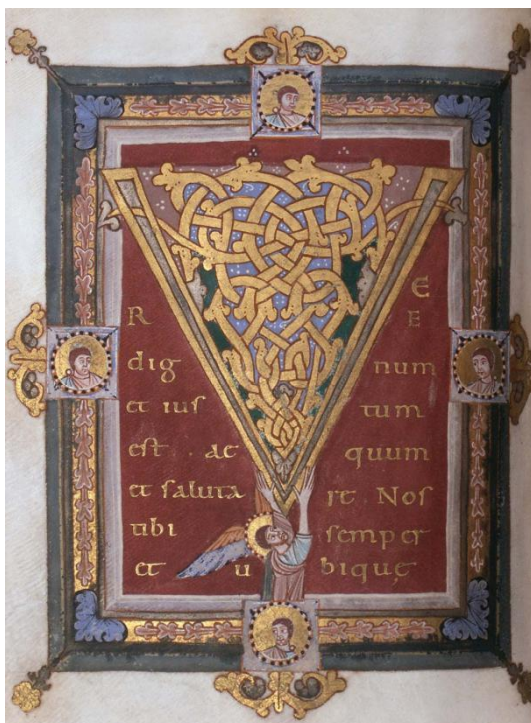 V E
R E
dig num
et ius tum
est ae quum
et saluta re Nos
tibi semper
et u biquę